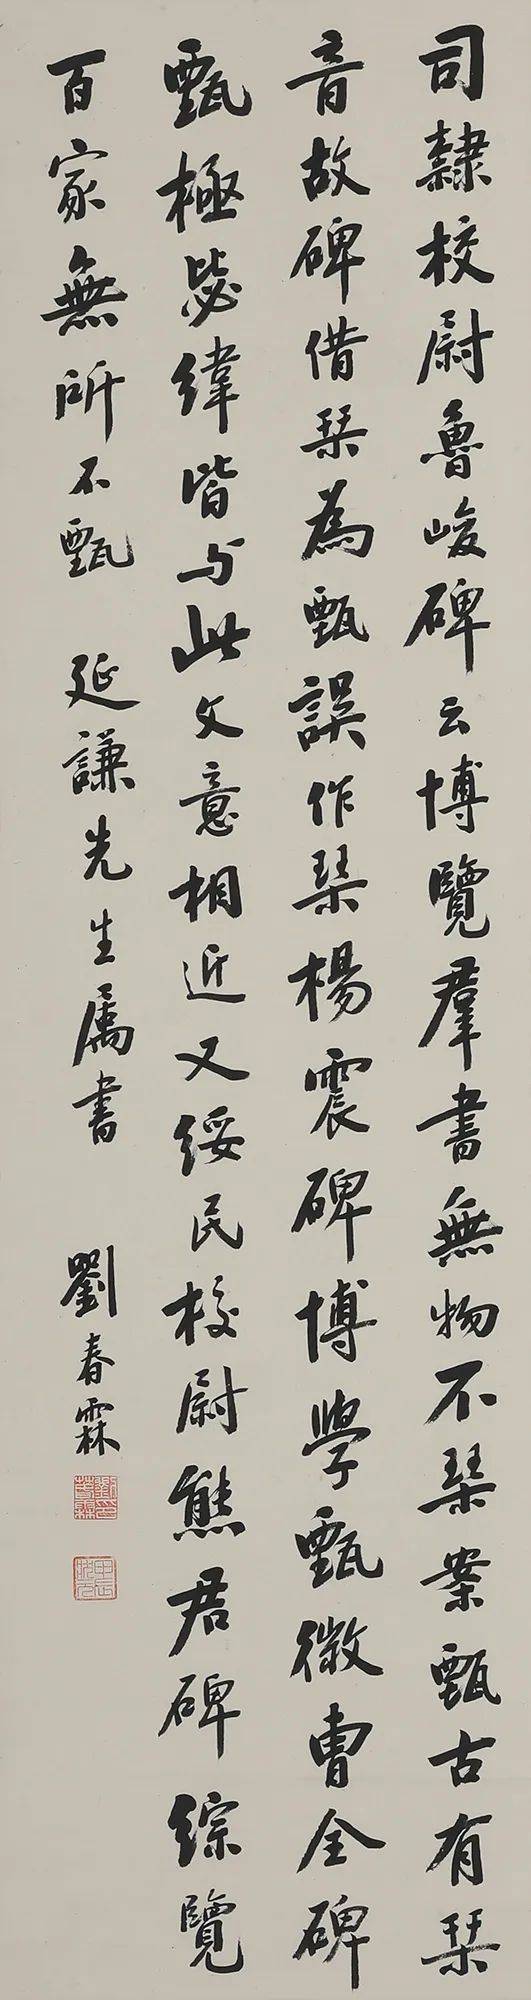 司隸校尉魯峻碑云博覽羣書無物不栞案甄古有栞
音故碑借栞為甄誤作栞楊震碑博學甄微曹全碑
甄極毖緯皆与此文意相近又綏民校尉熊君碑綜覽
百家無所不甄 延謙先生屬書 劉春霖